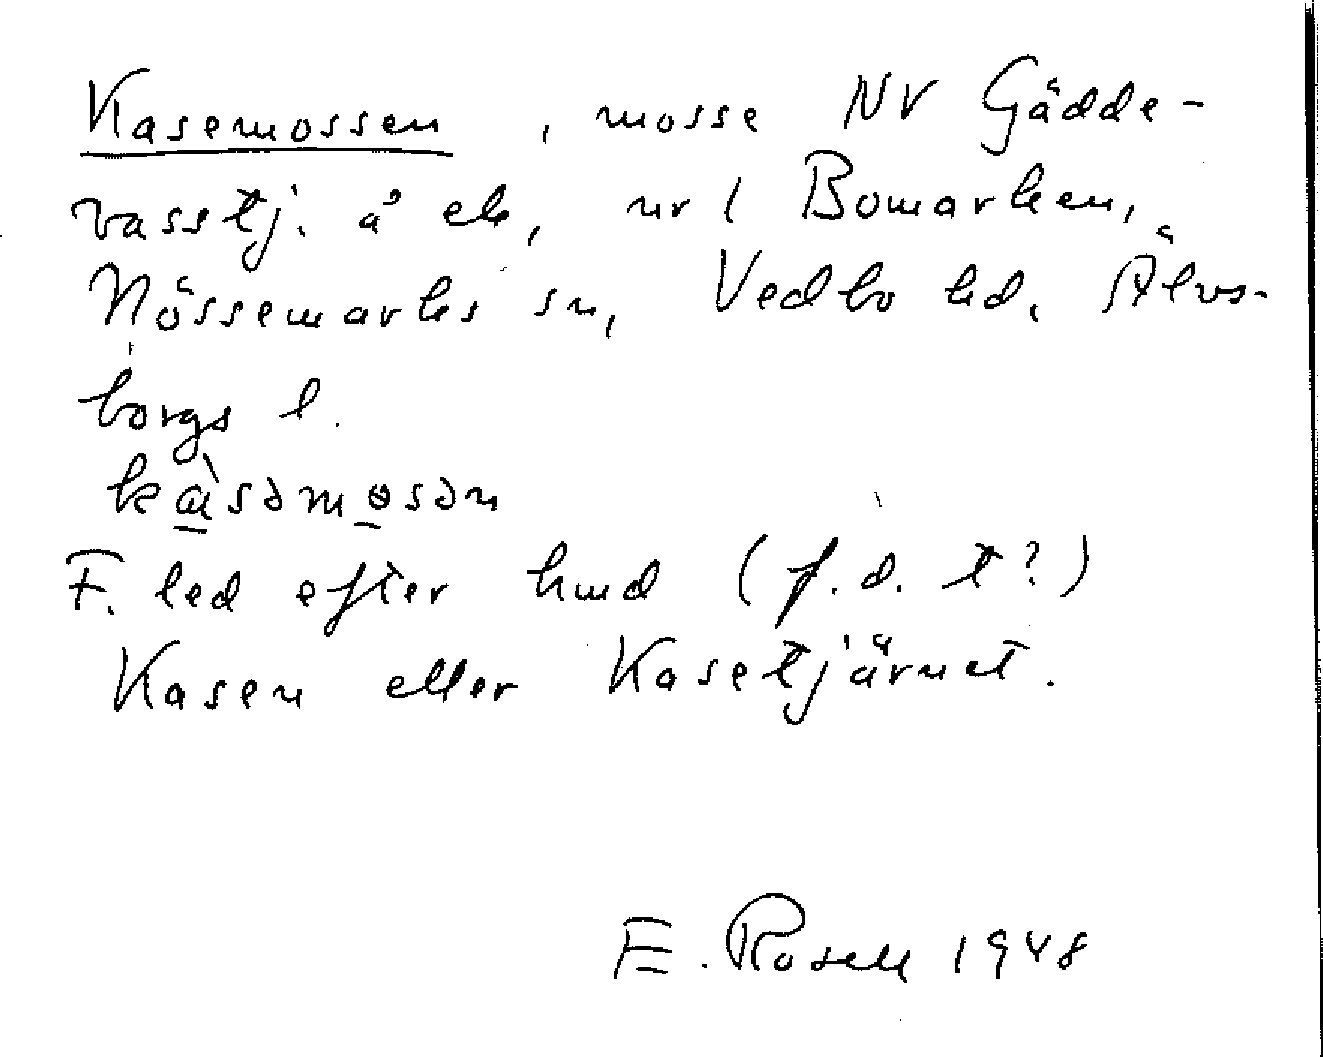 Kasemossen, mosse NV Gädde-
vasstj. å ek, nr 1 Bomarken,
Nössemarks sn, Vedbo hd. Älvs-
borgs l.
kɑ̀səmosən
F. led efter hmd (f.d. t?)
Kasen eller Kasetjärnet.
E. Rosell 1948